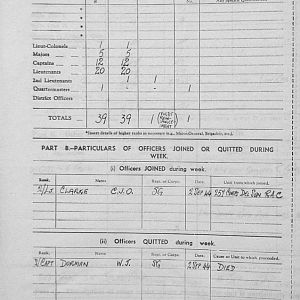 Lieut-Colonels 1 1
Majors 5 5
Captains 12 12
Lieutenants 20 20
2nd Lieutenants 1 1
Quartermasters 1 1
District Officers
TOTALS 39 39 1 1
*Insert details of higher ranks as necessary (e.g., Major-General, Brigadier, etc.)
PART B.—PARTICULARS OF OFFICERS JOINED OR QUITTED DURING
WEEK.
(i) Officers JOINED during week.
Rank. Name Regt. or Corps. Date Unit from which joined.
CLARKE C.J.O. SG 2 Sep 44 Del Sqn RAC
(ii) Officers QUITTED during week.
Rank. Name Regt. or Corps. Date Cause or Unit to which proceeded.
DORMAN W.J. SG 2 Sep 44 DIED